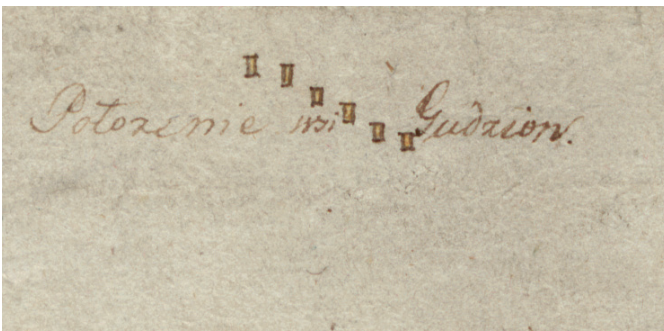 Położenie wsi Gudzion.